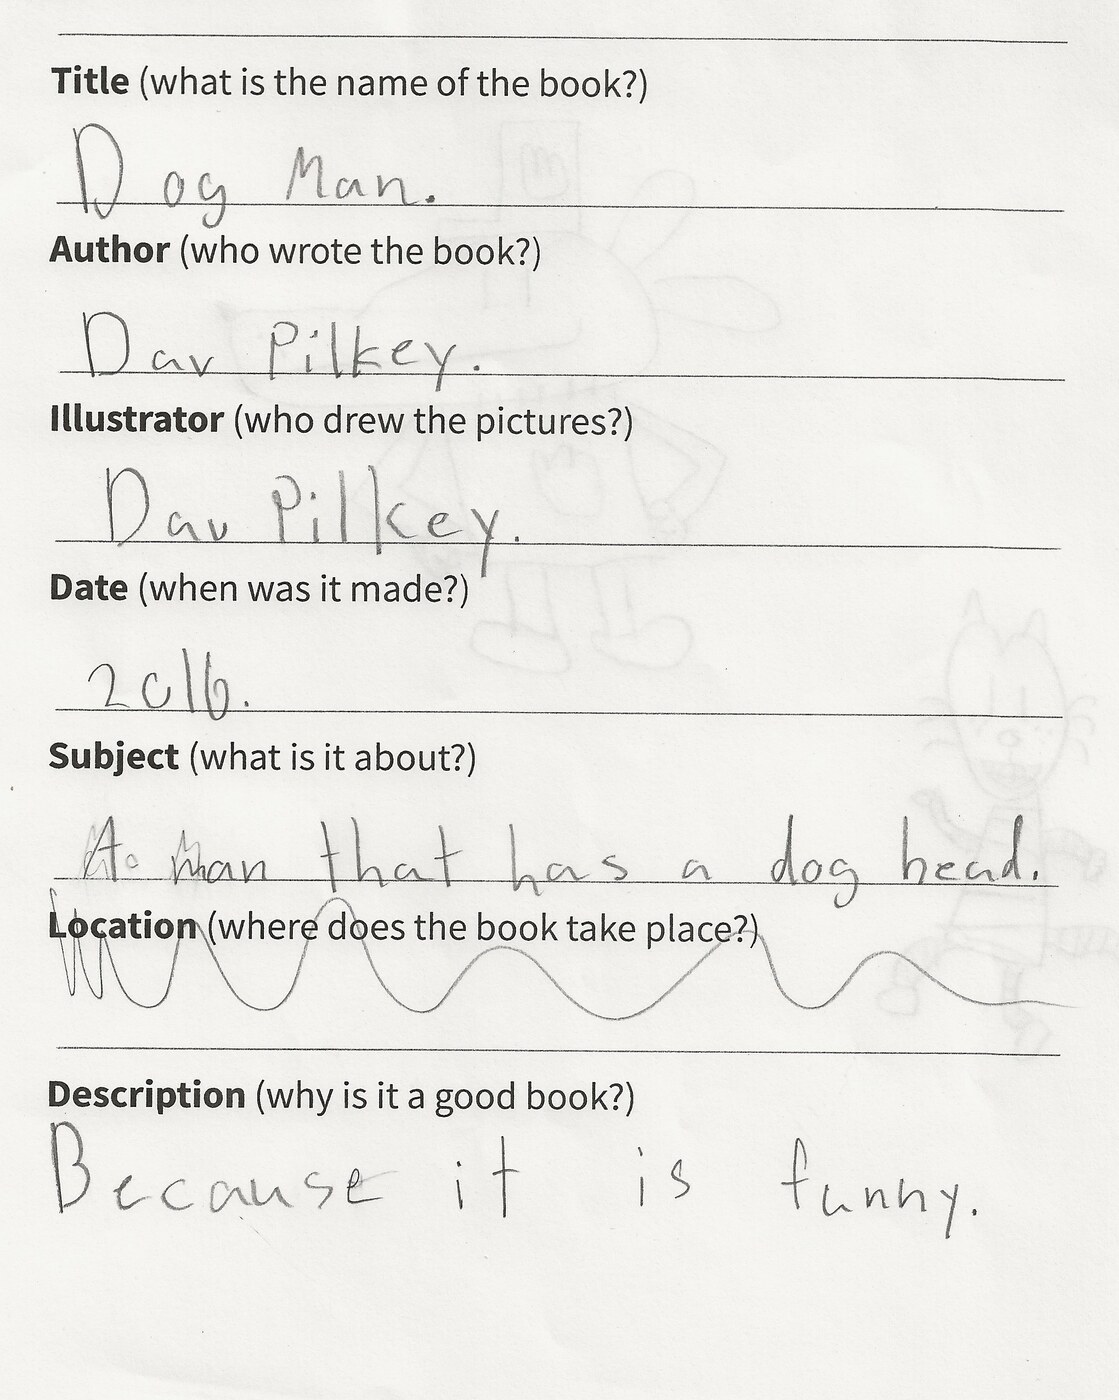 Title (what is the name of the book?)
Dog Man.
Author (who wrote the book?)
Dav Pilkey.
Illustrator (who drew the pictures?)
Dav Pilkey.
Date (when was it made?)
2016.
Subject (what is it about?)
A man that has a dog head.
Location (where does the book take place?)
Description (why is it a good book?)
Because it is funny.